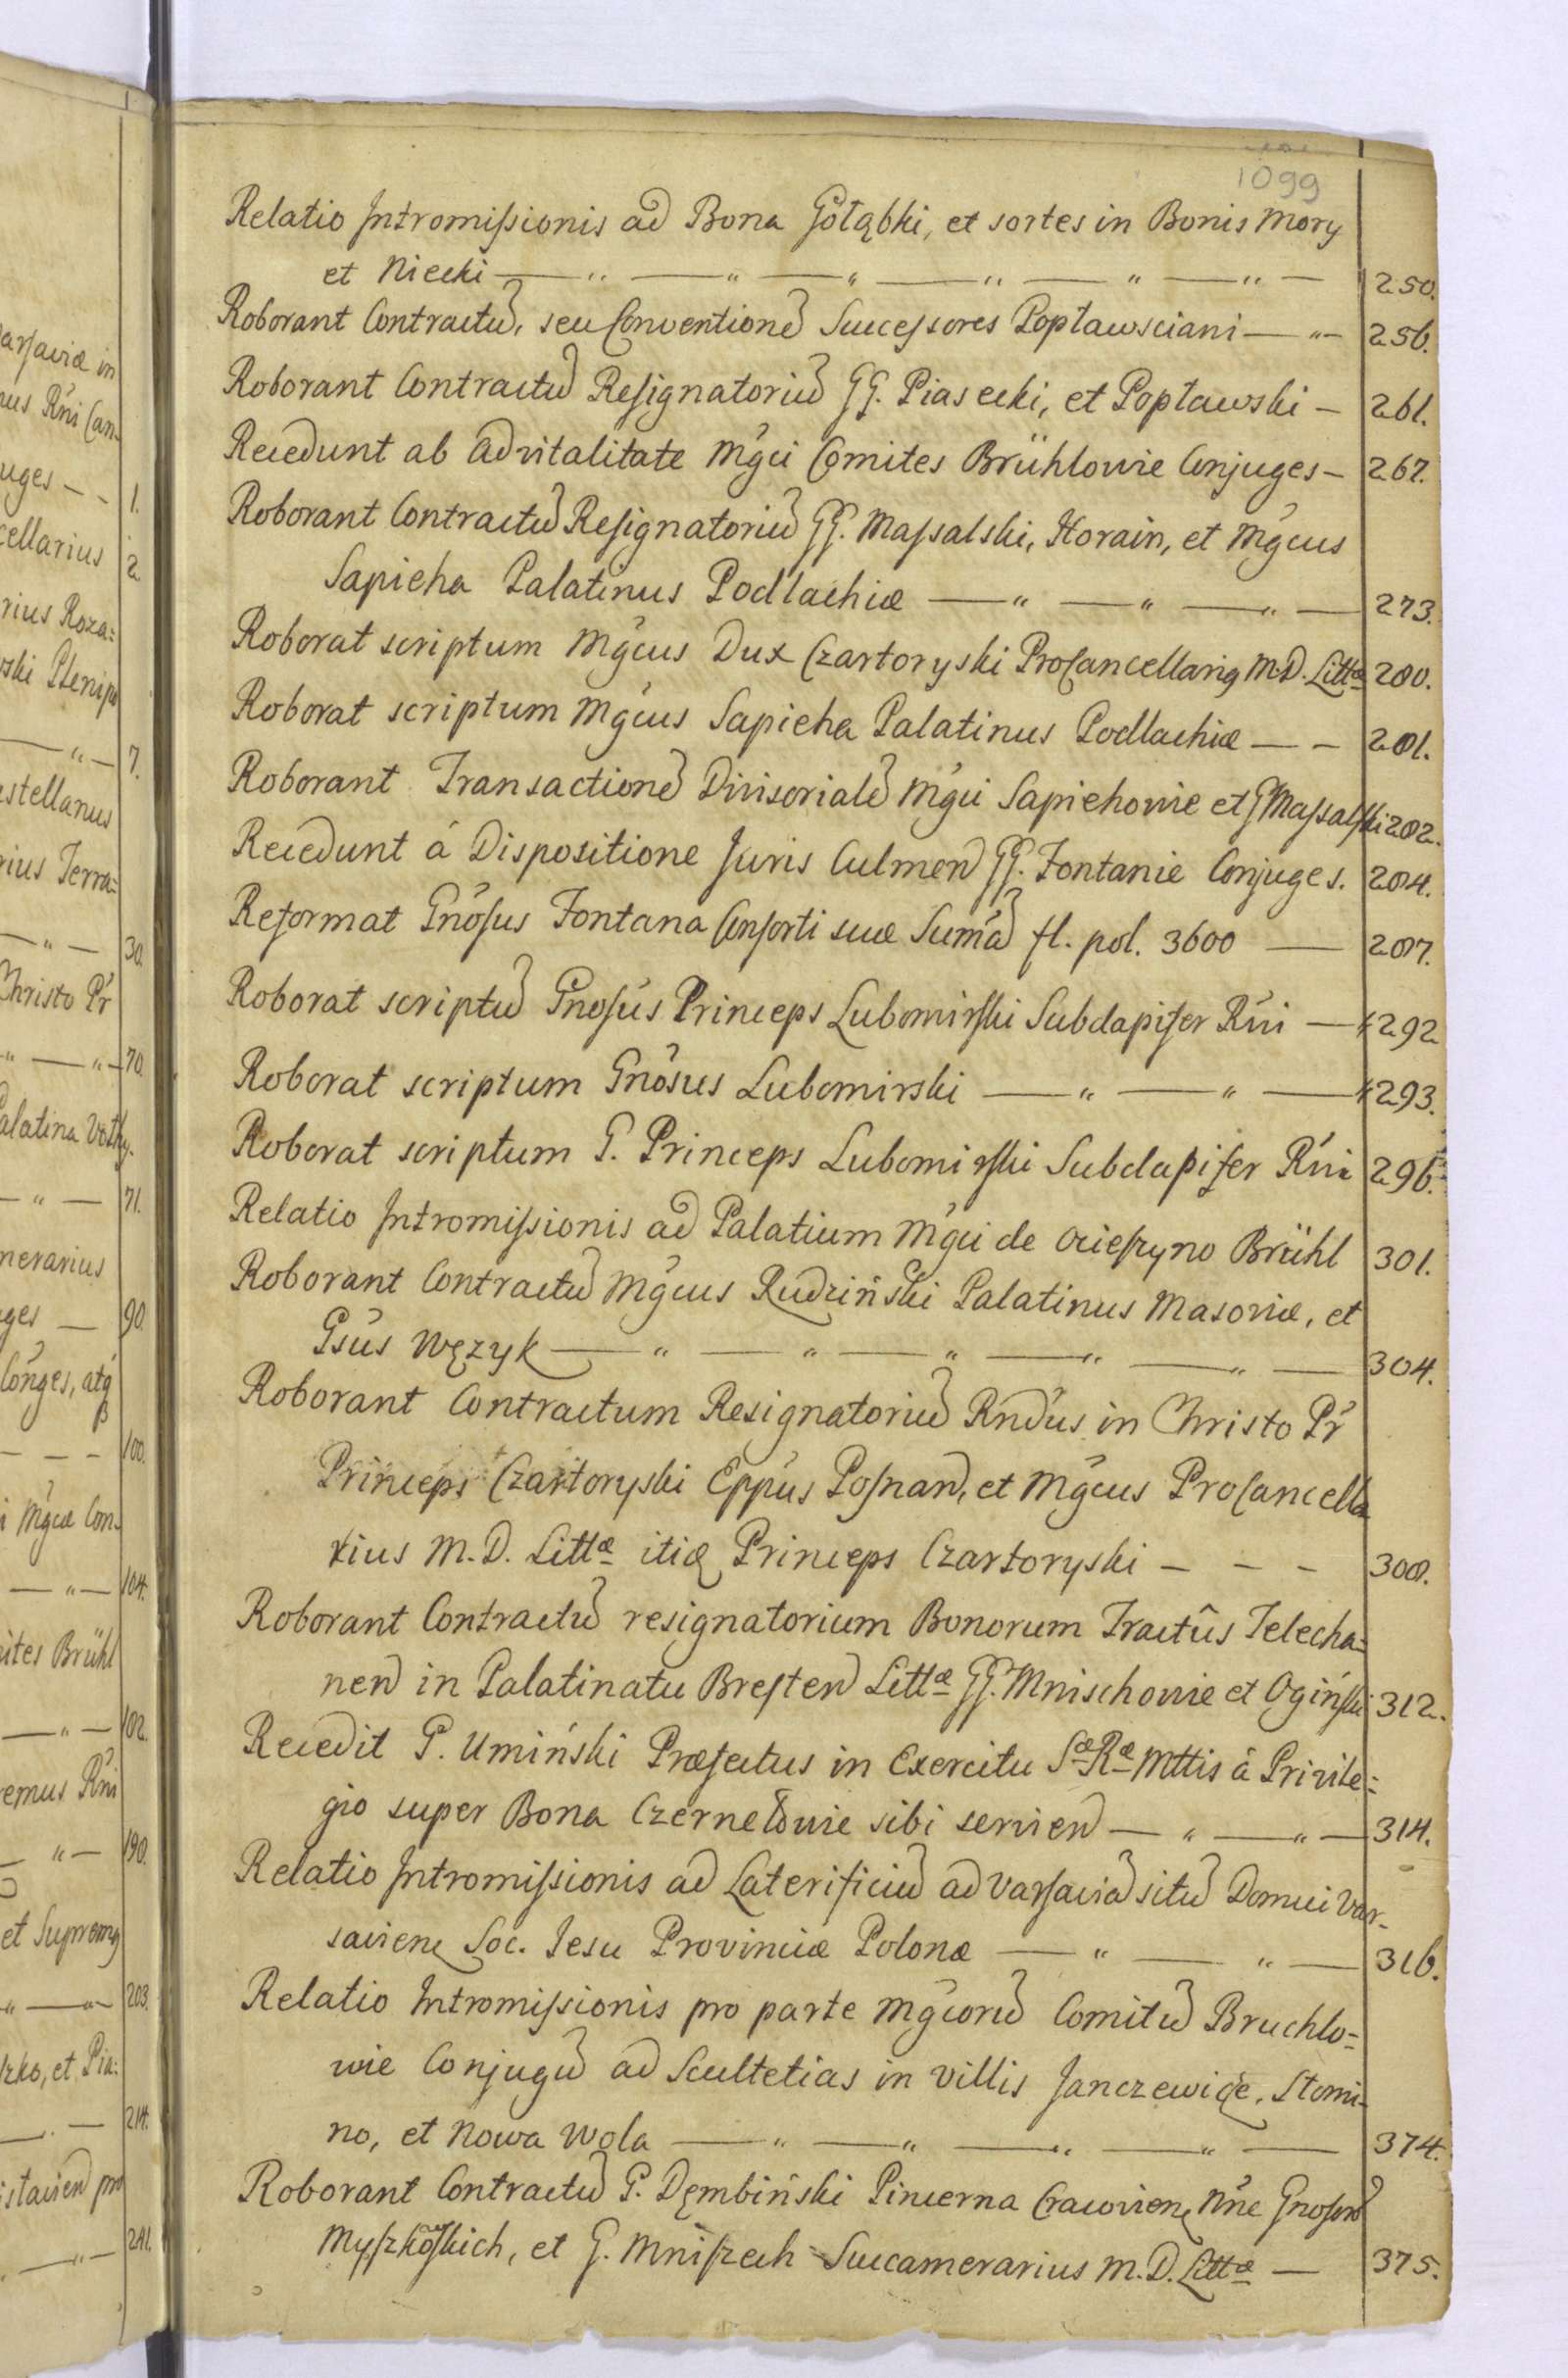 1099
Relatio Intromissionis ad Bona Gołąbki, et sortes in Bonis Mory
et Niecki — " — " — " — " — " — " — 250.
Roborant Contractū, seu Conventionē Successores Popławsciani — " — 256.
Roborant Contractū Resignatoriū GG. Piasecki, et Popławski — 261.
Recedunt ab advitalitate Mgci Comites Brühlowie Conjuges — 267.
Roborant Contractū Resignatoriū GG. Massalski, Horain, et Mgcus
Sapieha Palatinus Podlachiæ — " — " — " — 273.
Roborat scriptum Mgcus Dux Czartoryski ProCancellarig M.D. Littæ 280.
Roborat scriptum Mgcus Sapieha Palatinus Podlachiæ — — 281.
Roborant Transactionē Divisorialē Mgci Sapiehowie et G Massalski 282.
Recedunt á Dispositione Juris Culmen GG. Fontanie Conjuges. 284.
Reformat Gnosus Fontana Consorti suæ Sumā fl. pol. 3600 — 287.
Roborat scriptū Gnosus Princeps Lubomirski Subdapifer Rni — 292
Roborat scriptum Gnosus Lubomirski — " — " — 293.
Roborat scriptum G. Princeps Lubomirski Subdapifer Rni 296.
Relatio Intromissionis ad Palatium Mgci de Ocieszyno Brühl 301.
Roborant Contractū Mgcus Rudziński Palatinus Masoviæ, et
Gsus Wężyk — " — " — " — " — " — 304.
Roborant Contractum Resignatoriū Rndus in Christo Pr
Princeps Czartoryski Eppus Posnan, et Mgcus ProCancella
rius M.D. Littæ itiq Princeps Czartoryski — — — 308.
Roborant Contractū resignatorium Bonorum Tractûs Telecha=
nen in Palatinatu Bresten Littæ GG. Mnischowie et Ogiński 312.
Recedit G. Umiński Præfectus in Exercitu Sæ Ræ Mttis á Privile=
gio super Bona Czernelowie sibi servien — " — " — 314.
Relatio Intromissionis ad Laterificiū ad Varsaviā sitū Domui Var-
savien Soc. Jesu Provinciæ Polonæ — " — " — 316.
Relatio Intromissionis pro parte Mgcorū Comitū Bruchlo=
wie Conjugū ad Scultetias in villis Janczewice, Stomi-
no, et Nowa Wola — " — " — " — " — 374.
Roborant Contractū G. Dęmbiński Pincerna Cracovien, Nne Gnosorū
Myszkowskich, et G. Mniszech Succamerarius M.D. Littæ — 375.